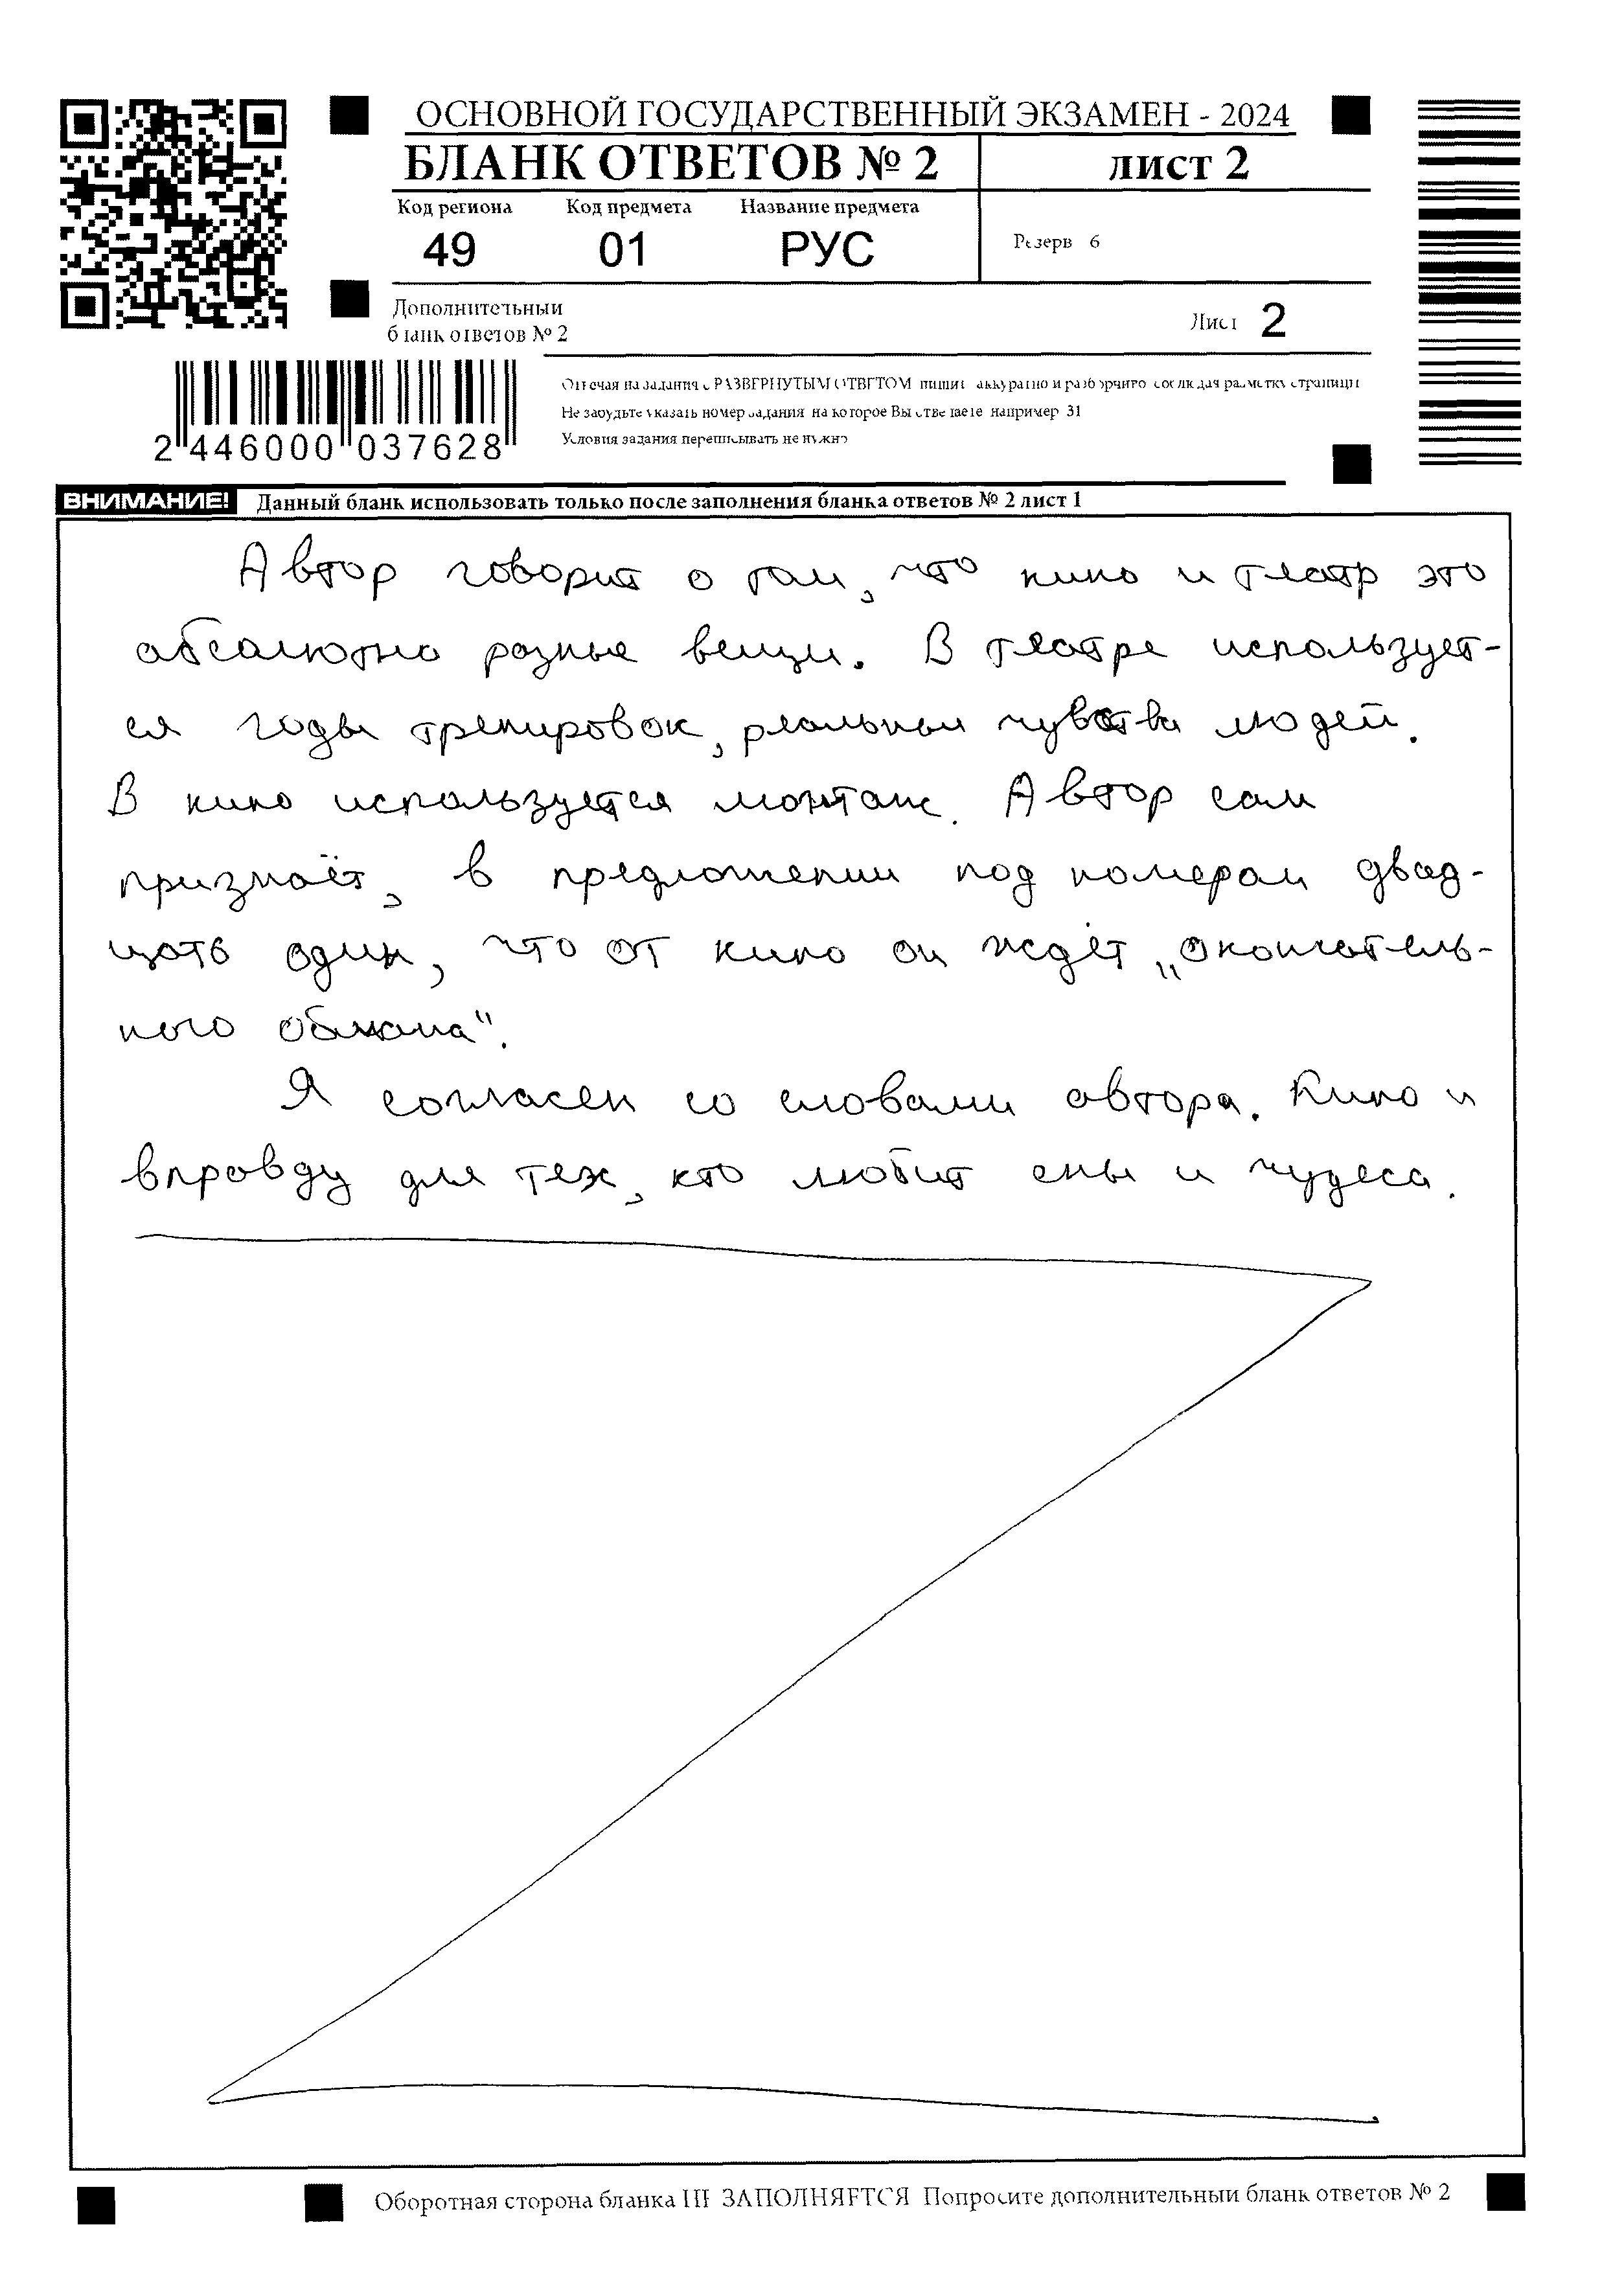 ОСНОВНОЙ ГОСУДАРСТВЕННЫЙ ЭКЗАМЕН - 2024
БЛАНК ОТВЕТОВ № 2 лист 2
Код региона Код предмета Название предмета
49 01 РУС Резерв 6
Дополнительный
бланк ответов № 2
Лист 2
Отвечая на задания с РАЗВЕРНУТЫМ ОТВЕТОМ пишите аккуратно и разборчиво соблюдая разметку страницы
Не забудьте указать номер задания на которое Вы отвечаете например 31
Условия задания переписывать не нужно
2 446000 037628
ВНИМАНИЕ! Данный бланк использовать только после заполнения бланка ответов № 2 лист 1
Автор говорит о том, что кино и театр это
абсалютно разные вещи. В театре использует-
ся годы тренировок, реальные чувства людей.
В кино используется монтаж. Автор сам
признаёт, в предложении под номером двад-
цать один, что от кино он ждёт „окончатель-
ного обмана“.
Я согласен со словами автора. Кино и
вправду для тех, кто любит сны и чудеса.
Оборотная сторона бланка НЕ ЗАПОЛНЯЕТСЯ Попросите дополнительный бланк ответов № 2